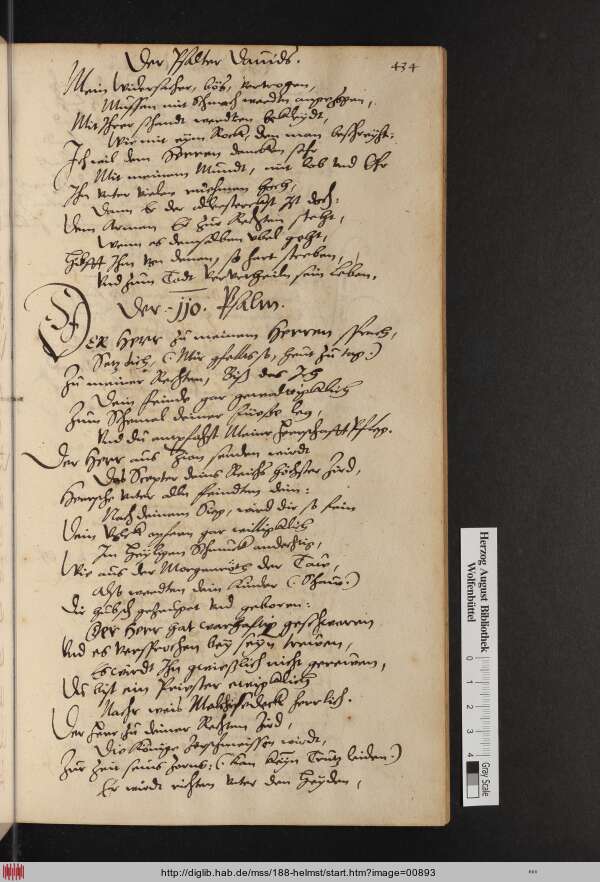 Der Psalter Dauids.
434
Mein widersacher, böß, verlogen,
Müssen mit Schmach werden angezogen,
Mit Ihrer schandt werden bekleydt,
Wie mit eym Rock, den man beschreyht:
Ich wil dem Herren dancken sehr
Mit meinem Mundt, mit Lob vnd Ehr
Ihn vnter vielen rüehmen hoch,
Dann Er der Ist doch:
Dem Armen Er zur Rechten steht,
Wenn es demselben vbel geht,
Hilfft Ihm von denen, so hart streben,
Vnd zum Todt verurtheiln sein Leben.
Der .110. Psalm.
DER Herr zu meinem Herren sprach,
Setz dich, (: Mir gfelts so, heut zu tag :)
Zu meiner Rechten, Biß das Ich
Dein feinde gar gewaltigklich
Zum Schemel deiner füeße leg,
Vnd du meiner Herrschafft pfleg.
Der Herr aus Zion senden wirdt
Das Scepter deins Reichs höchster Zird,
Hersche vnter alln feindten dein:
Nach deinem Sieg, wird dir so fein
Dein Volck opfern gar willigklich
In Heyligem Schmuck
Wie aus der Morgenröth der Taw,
Also werden dein kinder (: Schaw :)
Dir hübsch vnd geboren:
Der Herr hat warhafftig geschworen
Vnd es versprochen bey seyn trewen,
Es wirdt Ihn gwießlich nicht gerewen,
Du bist ein Priester ewigklich
Nach weis Malchisedeck herrlich.
Der Herr zu deiner Rechten Zird,
Die Könige zerschmeissen wirdt,
Zur Zeit seins Zorns: (: kan keyn Trutz leiden :)
Er wirdt richten vnter den Heyden,
Herzog August Bibliothek
Wolfenbüttel
0 1 2 3 4
Gray Scale
http://diglib.hab.de/mss/188-helmst/start.htm?image=00893